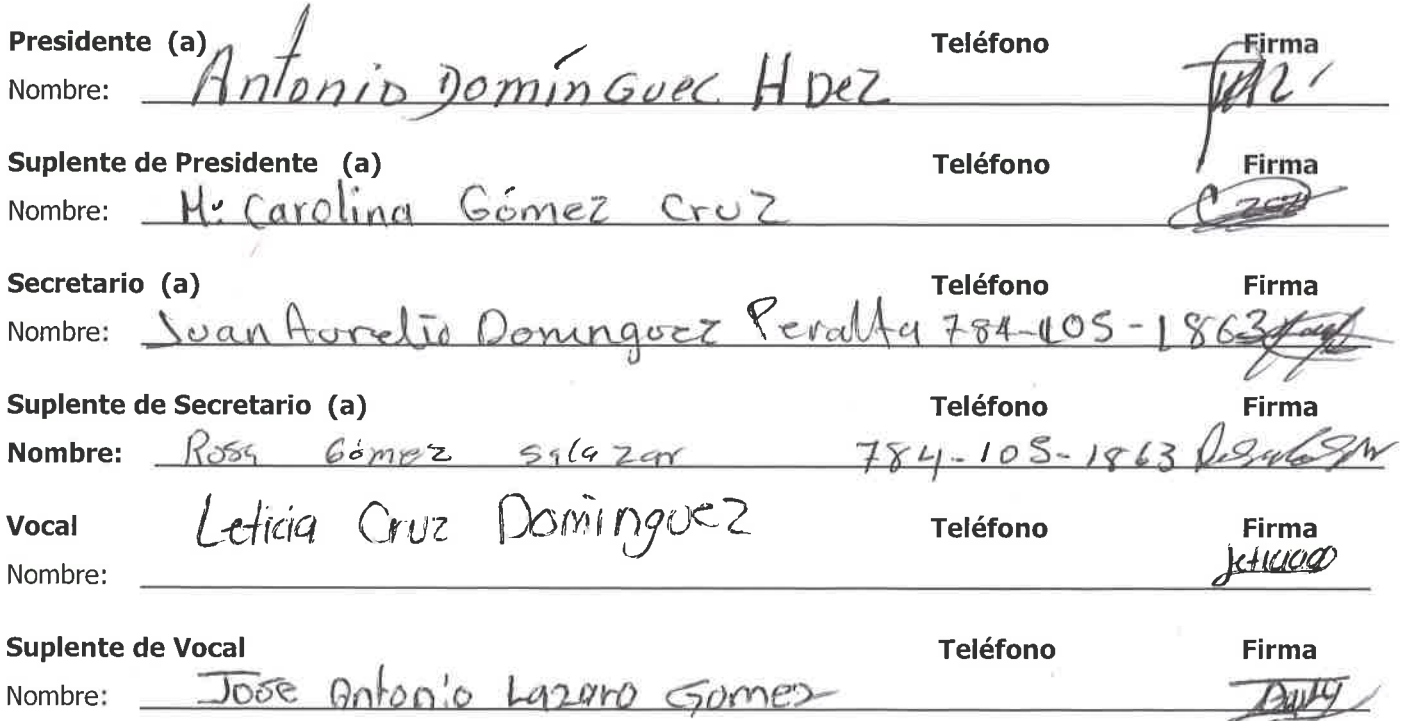 Presidente (a) Teléfono Firma
Nombre: Antonio Domínguec HDez
Suplente de Presidente (a) Teléfono Firma
Nombre: Mª Carolina Gómez Cruz
Secretario (a) Teléfono Firma
Nombre: Juan Aurelio Dominguez Peralta 784-105-1863
Suplente de Secretario (a) Teléfono Firma
Nombre: Rosa Gómez Salazar 784-105-1863
Vocal Leticia Cruz Dominguez Teléfono Firma
Nombre:
Suplente de Vocal Teléfono Firma
Nombre: Jose Antonio Lazaro Gomez